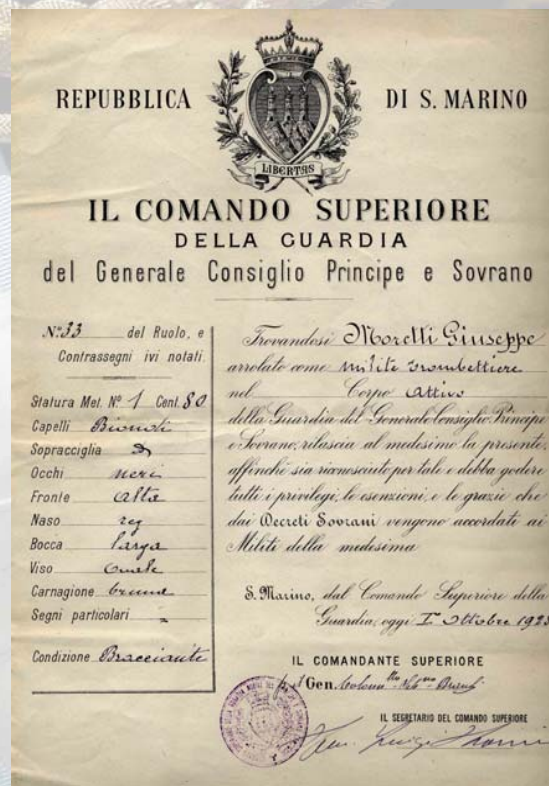 REPUBBLICA DI S. MARINO
LIBERTAS
IL COMANDO SUPERIORE
DELLA GUARDIA
del Generale Consiglio Principe e Sovrano
N.º 33 del Ruolo, e
Contrassegni ivi notati.
Statura Met. Nº 1 Cent. 80
Capelli Biondi
Sopracciglia
Occhi neri
Fronte alta
Naso reg
Bocca larga
Viso Ovale
Carnagione bruna
Segni particolari "
Condizione Bracciante
Trovandosi Moretti Giuseppe
arrolato come milite trombettiere
nel Corpo attivo
della Guardia del Generale Consiglio Principe
e Sovrano, rilascia al medesimo la presente,
affinchè sia riconosciuto per tale e debba godere
tutti i privilegi, le esenzioni, e le grazie che
dai Decreti Sovrani vengono accordati ai
Militi della medesima
S. Marino, dal Comando Superiore della
Guardia, oggi 1º Ottobre 1923
IL COMANDANTE SUPERIORE
Gen.
IL SEGRETARIO DEL COMANDO SUPERIORE
Luigi